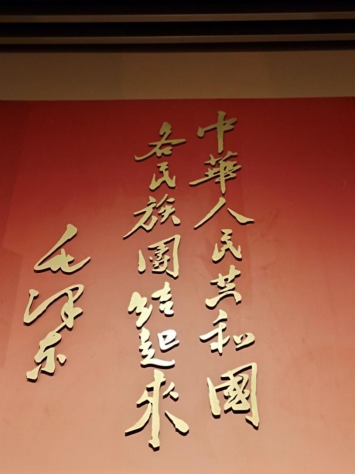 中華人民共和國
各民族團结起來
毛泽东